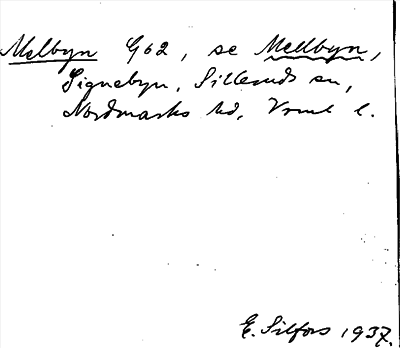 Melbyn G62, se Mellbyn,
Signebyn, Silleruds sn,
Nordmarks hd, Vrml l.
E. Silfors 1937.